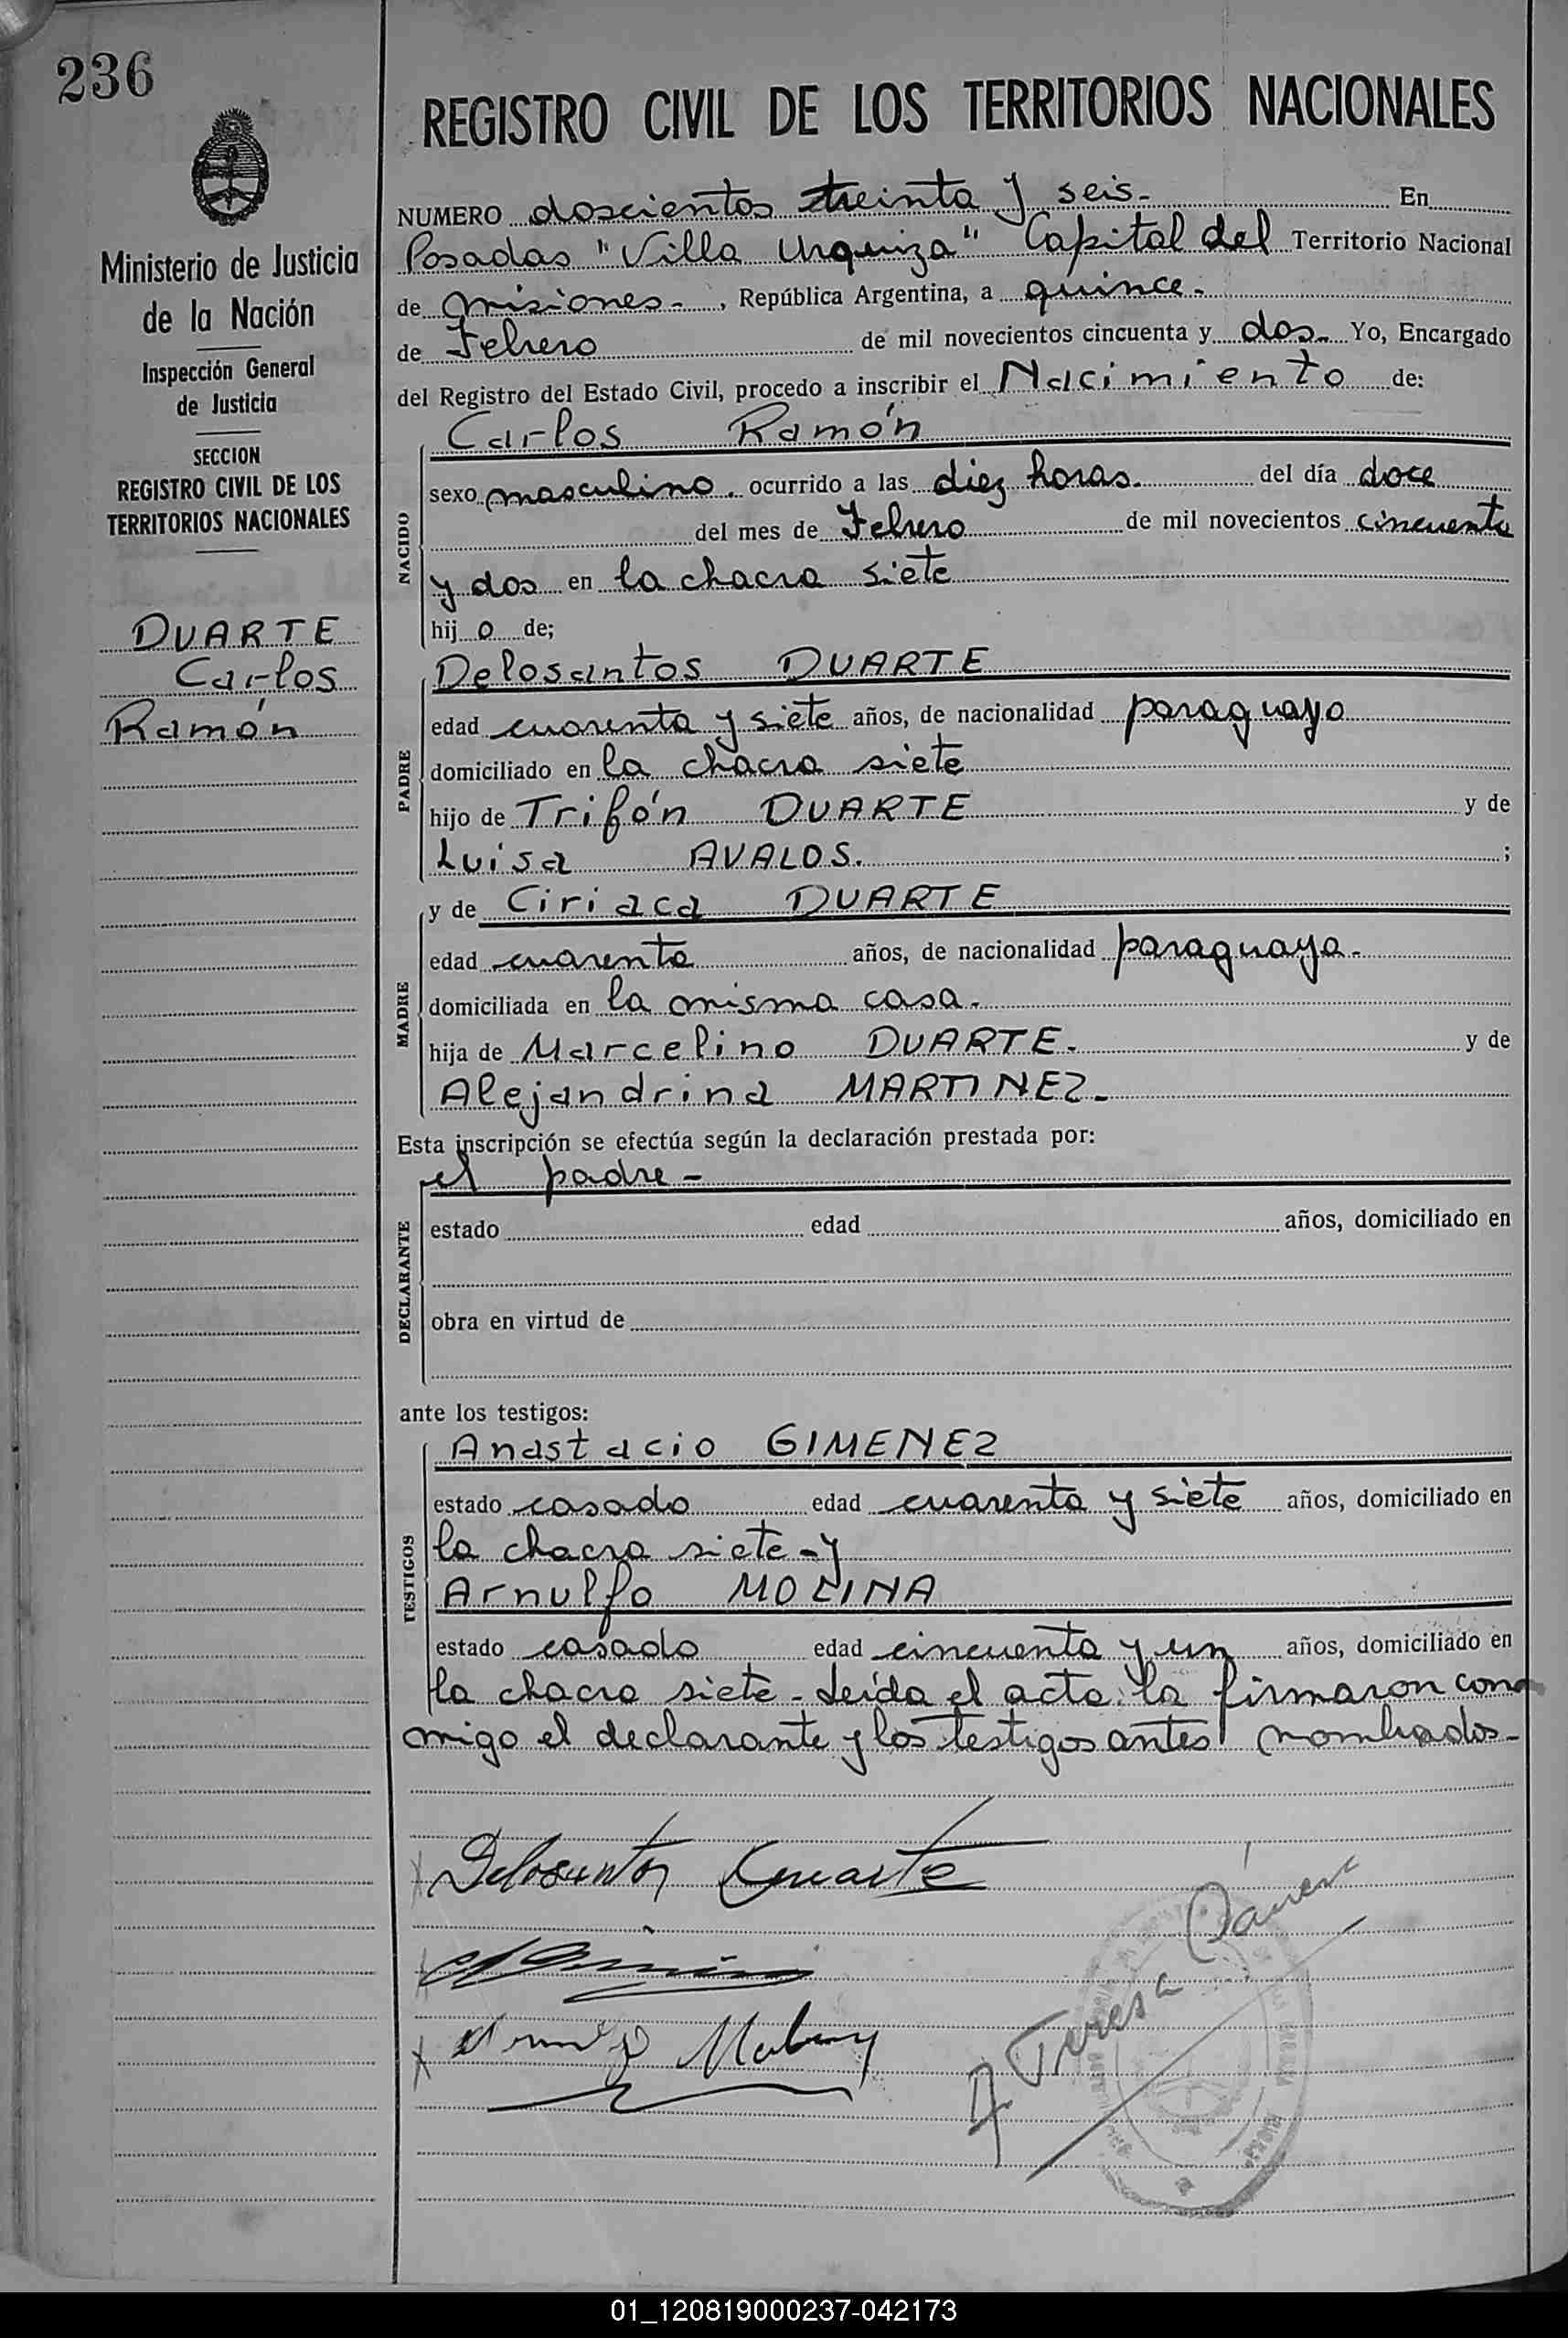 236
Ministerio de Justicia
de la Nación
Inspección General
de Justicia
SECCION
REGISTRO CIVIL DE LOS
TERRITORIOS NACIONALES
DUARTE
Carlos
Ramón
REGISTRO CIVIL DE LOS TERRITORIOS NACIONALES
NUMERO doscientos treinta y seis- En
Posadas "Villa Urquiza" Capital del Territorio Nacional
de Misiones-, República Argentina, a quince-
de Febrero de mil novecientos cincuenta y dos- Yo, Encargado
del Registro del Estado Civil, procedo a inscribir el Nacimiento de:
NACIDO
Carlos Ramón
sexo masculino. ocurrido a las diez horas. del día doce
del mes de Febrero de mil novecientos cincuenta
y dos en la chacra siete
hijo de;
PADRE
Delosantos DUARTE
edad cuarenta y siete años, de nacionalidad paraguayo
domiciliado en la chacra siete
hijo de Trifón DUARTE y de
Luisa AVALOS. ;
MADRE
y de Ciriaca DUARTE
edad cuarenta años, de nacionalidad paraguaya-
domiciliada en la misma casa-
hija de Marcelino DUARTE- y de
Alejandrina MARTINEZ-
Esta inscripción se efectúa según la declaración prestada por:
DECLARANTE
el padre-
estado edad años, domiciliado en
obra en virtud de
ante los testigos:
TESTIGOS
Anastacio GIMENEZ
estado casado edad cuarenta y siete años, domiciliado en
la chacra siete-y
Arnulfo MOLINA
estado casado edad cincuenta y un años, domiciliado en
la chacra siete- Leída el acta la firmaron con
migo el declarante y los testigos antes nombrados-
Delosantos Duarte
Teresa
01_120819000237-042173